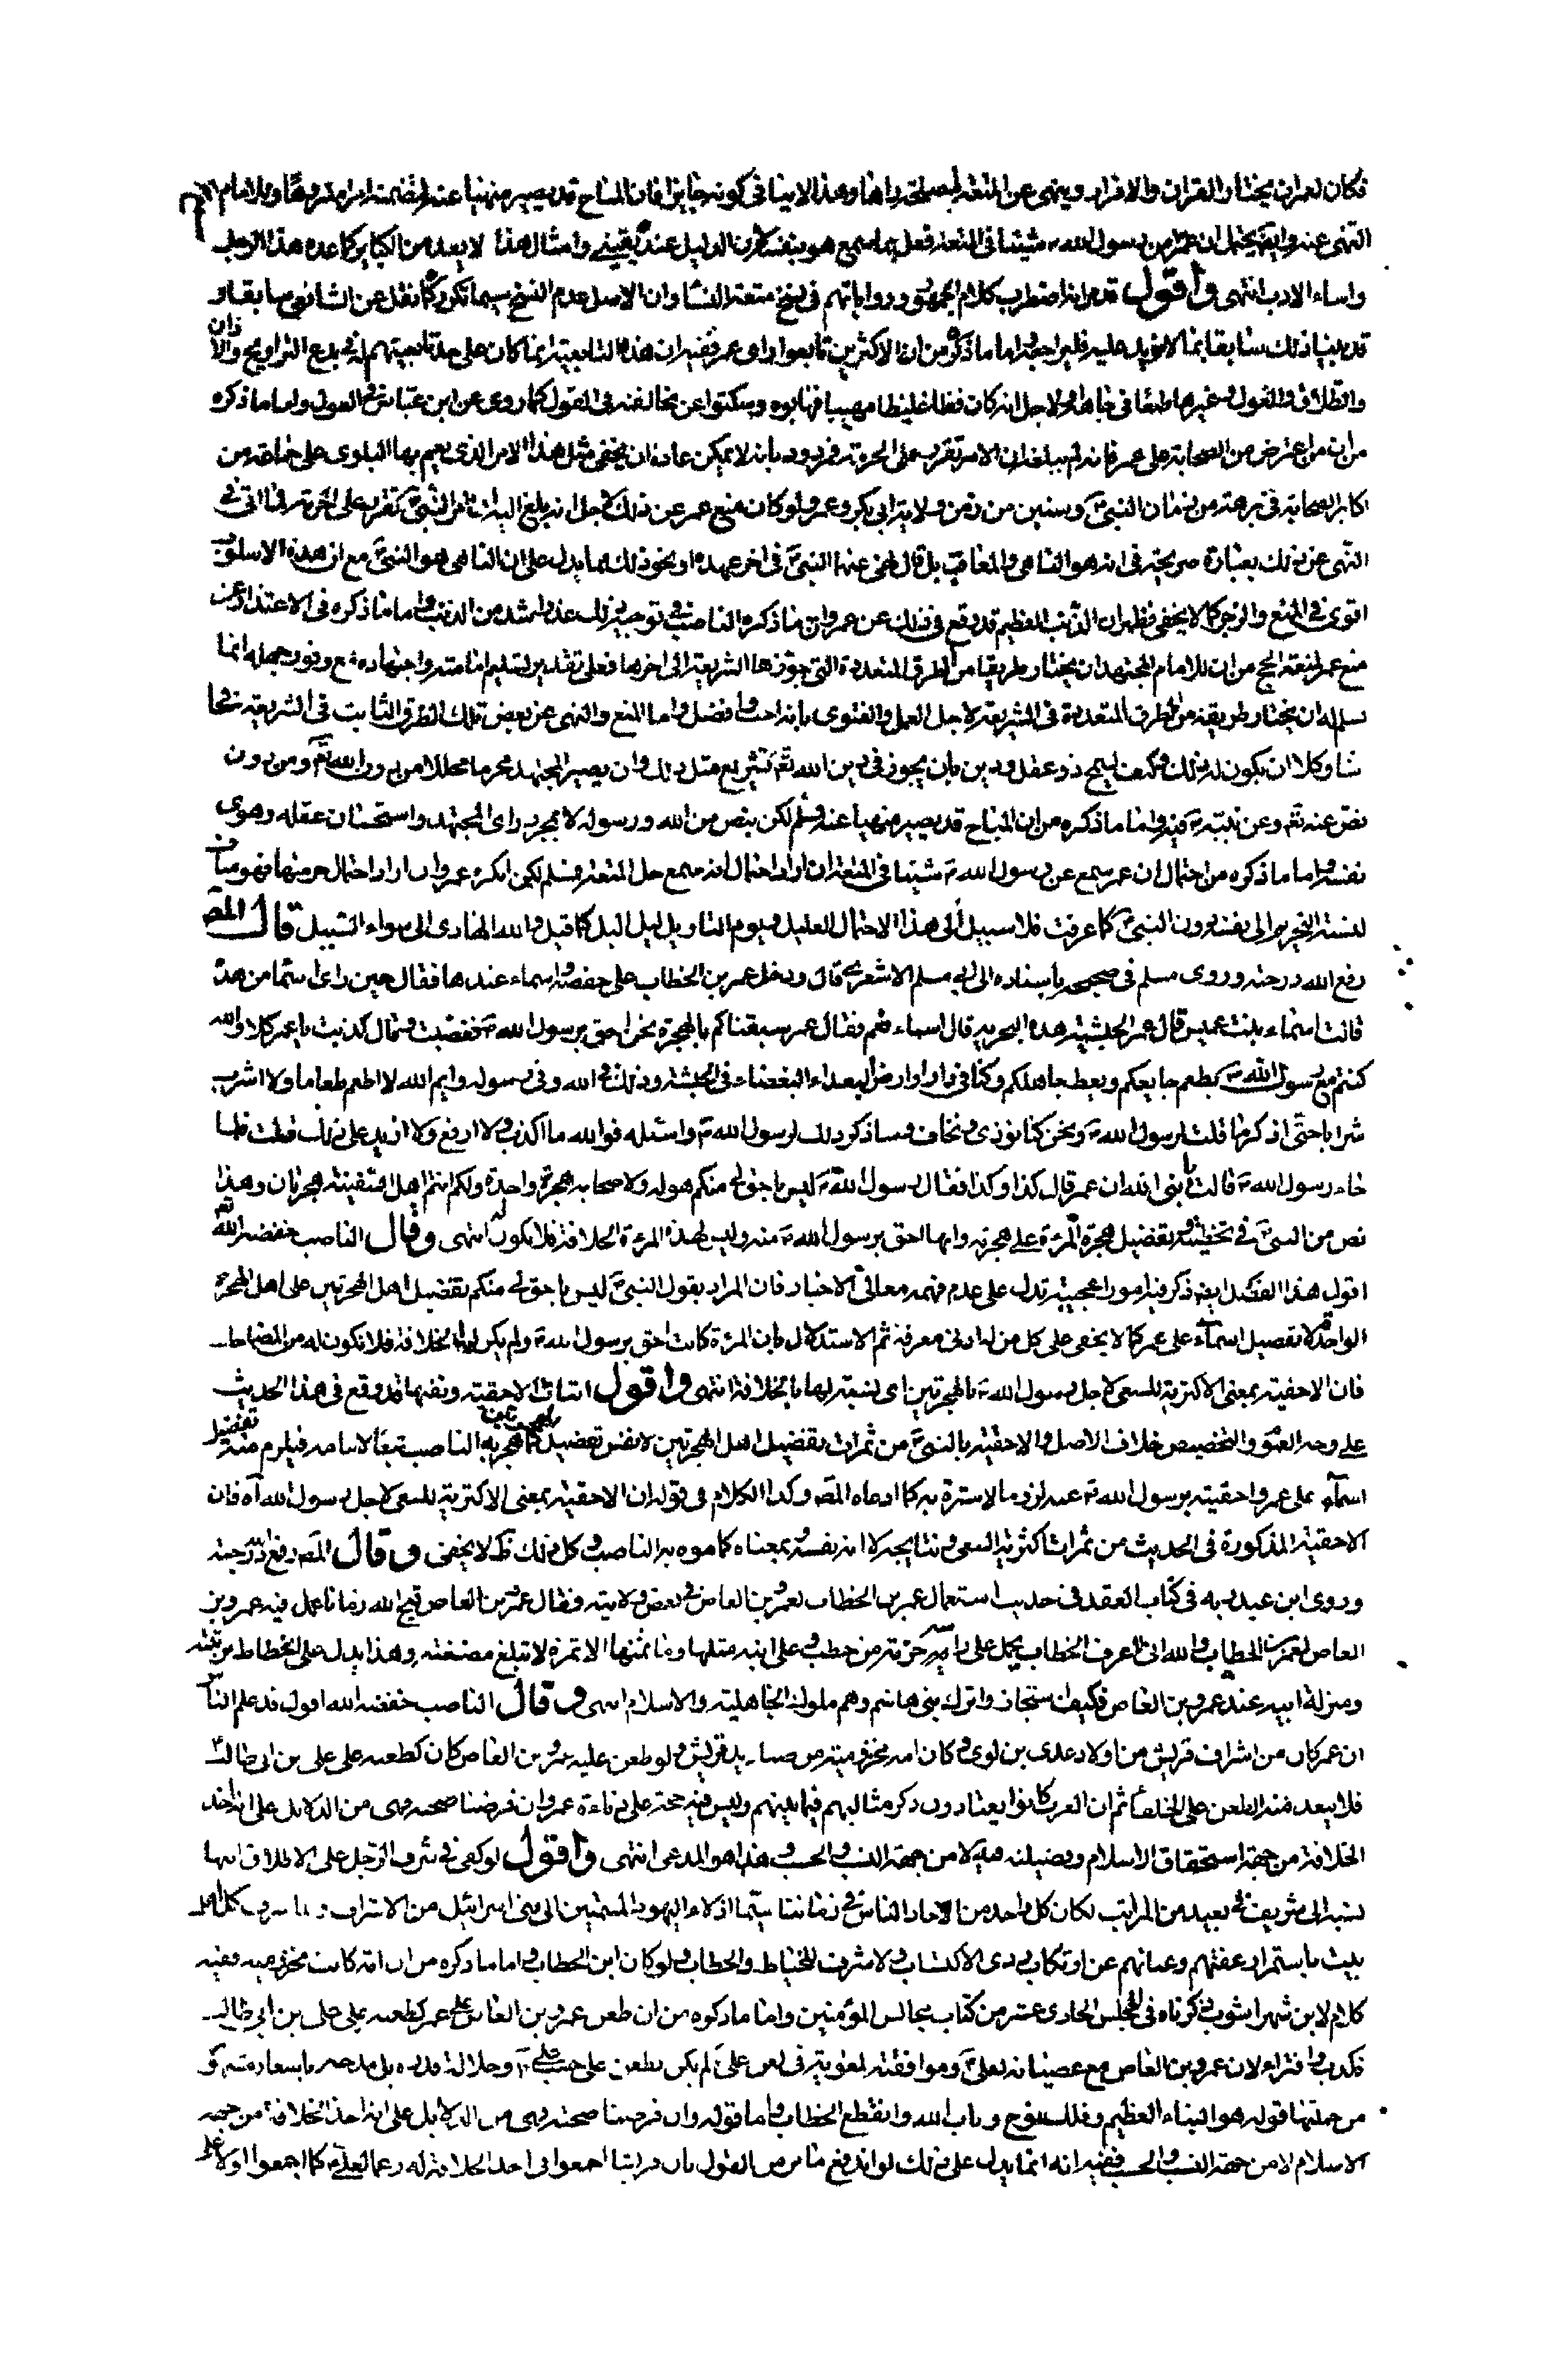 فكان لعمر ان يختار القران والافراد وينهى عن المتعة لمصلحة راها وهذا لا ينافى كونه جايزا فان المباح قد يصير منهيا عنه لتضمنه امرا مكروها وللامام
النهى عنه وايضا يحتمل ان عمر سمع من رسول الله ص شيئا فى المتعة فعمل بما سمع هو بنفسه لان الدليل عنده يقينى وامثال هذا لا يعد من الكباير كما عده هذا الرجل
واساء الادب انتهى واقول قد مر اضطراب كلام الجمهور ورواياتهم فى نسخ متعة النساء وان الاصل عدم النسخ سيما تكرره كما نقل عن الشافعى سابقا و
قد بينا ذلك سابقا بما لا مزيد عليه فليراجع واما ما ذكره من ان الاكثرين تابعوا راى عمر ففيه ان هذه المتابعة انما كان على حد متابعتهم له فى بدع التراويح والاذان
والطلاق والعول وغيرها طمعا فى جاهه او لاجل انه كان فظا غليظا مهيبا فهابوه وسكتوا عن مخالفته فى القول كما روى عن ابن عباس فى العول واما ما ذكره
من ان من اعترض من الصحابة على عمر فانه لم يبلغه ان الامر تقرر على الحرمة فمردود بانه لا يمكن عادة ان يخفى مثل هذا الامر الذى يعم بها البلوى على جماعة من
اكابر الصحابة فى برهة من زمان النبى ص وسنين من زمن ولاية ابى بكر وعمر ولو كان منع عمر عن ذلك لاجل انه بلغ اليه ان امر النبى ص تقرر على الحرمة لما اتى فى
النهى عن ذلك بعبارة صريحة فى انه هو الناهى والمعاقب بل قال نهى عنها النبى ص فى اخر عهده او نحو ذلك مما يدل على ان الناهى هو النبى ص مع ان هذه الاسلوب
اقوى فى المنع والزجر كما لا يخفى فظهر ان الذنب العظيم قد وقع فى ذلك عن عمر وان ما ذكره الناصب فى توجيه ذلك عذر اشد من الذنب واما ما ذكره فى الاعتذار عن
منع عمر لمتعة الحج من ان للامام المجتهد ان يختار طريقا من الطرق المتعددة التى جوزها الشريعة الى اخرها فعلى تقدير تسليم امامته واجتهاده مع وفور جهله انما
نسلم له ان يختار طريقة من الطرق المتعددة فى الشريعة لاجل العمل والفتوى بانه احب وافضل واما المنع والنهى عن بعض تلك الطرق الثابت فى الشريعة فحا
شا وكلا ان يكون له ذلك وكيف يسمح ذو عقل ودين بان يجوز فى دين الله تع تشريع مثل ذلك وان يصير المجتهد محرما محللا من دون الله تع ومن دون
نص عنه تع وعن نبيه ص فيه واما ما ذكره من ان المباح قد يصير منهيا عنه فمسلم لكن بنص من الله ورسوله لا بمجرد راى المجتهد واستحسان عقله وهوى
نفسه واما ما ذكره من احتمال ان عمر سمع عن رسول الله ص شيئا فى المتعة ان اراد احتمال انه سمع حل المتعة فمسلم لكن انكره عمر وان اراد احتمال حرمتها فهو مناف
لنسبة التحريم الى نفسه دون النبى ص كما عرفت فلا سبيل الى هذا الاحتمال العليل ويوم التاويل ليل اليل كما قيل والله الهادى الى سواء السبيل قال المص
رفع الله درجته وروى مسلم فى صحيحه باسناده الى ابى مسلم الاشعرى قال ودخل عمر بن الخطاب على حفصة واسماء عندها فقال حين راى اسما من هذه
قالت اسماء بنت عميس قال عمر الحبشية هذه البحرية قال اسماء نعم فقال عمر سبقناكم بالهجرة نحن احق برسول الله ص فغضبت وقال كذبت يا عمر كلا والله
كنتم مع رسول الله ص يطعم جايعكم ويعظ جاهلكم وكنا فى دار او ارض البعداء البغضاء فى الحبشة وذلك فى الله وفى رسوله وايم الله لا اطعم طعاما ولا اشرب
شرابا حتى اذكر ما قلت لرسول الله ص ونحن كنا نوذى ونخاف وساذكر ذلك لرسول الله ص واسئله فوالله ما اكذب ولا ازيغ ولا ازيد على ذلك قلت فلما
جاء رسول الله ص قالت يا نبى الله ان عمر قال كذا وكذا فقال رسول الله ص ليس باحق لى منكم هو له ولاصحابه هجرة واحدة ولكم انتم اهل السفينة هجرتان وهذا
نص من النبى ص فى تخطئته وتفضيل هجرة المرءة على هجرته وانها احق برسول الله ص منه وليس لهذه المرءة الخلافة فلا يكون له انتهى وقال الناصب خفضه الله
اقول هذا الفصل ايضا ذكر فيه امورا عجيبة تدل على عدم فهمه معانى الاخبار فان المراد بقول النبى ص ليس باحق لى منكم تفضيل اهل الهجرتين على اهل الهجرة
الواحدة لا تفضيل اسماء على عمر كما لا يخفى على كل من له ادنى معرفة ثم الاستدلال بان المرءة كانت احق برسول الله ص ولم يكن لها الخلافة فلا تكون له من المضاحك
فان الاحقية بمعنى الاكثرية للسعى لاجل رسول الله ص بالهجرتين اى نسبة لها بالخلافة انتهى واقول اثبات الاحقية ونفيها قد وقع فى هذا الحديث
على وجه العموم والتخصيص خلاف الاصل والاحقية بالنبى ص من ثمرات تفضيل اهل الهجرتين لا نفس تفضيل الهجرتين كما هجر به الناصب تبعا لامامه فيلزم منه تفضيل
اسماء على عمر واحقيته برسول الله ص عنه لزوما لا سترة به كما ادعاه المص وكذا الكلام فى قوله ان الاحقية بمعنى الاكثرية للسعى لاجل رسول الله اه فان
الاحقية المذكورة فى الحديث من ثمرات اكثرية السعى ونتايجه لا انه نفسه وبمعناه كما موه به الناصب وكل ذلك ظ لا يخفى وقال المص رفع الله درجته
وروى ابن عبد ربه فى كتاب العقد فى حديث استعمال عمر بن الخطاب لعمرو بن العاص فى بعض ولايته فقال عمرو بن العاص قبح الله زمانا عمل فيه عمرو بن
العاص لعمر بن الخطاب والله انى لاعرف الخطاب يحمل على راسه حزمة من حطب وعلى ابنه مثلها وما ثمنها الا تمرة لا تبلغ مضغته وهذا يدل على انحطاط مرتبته
ومنزلة ابيه عند عمرو بن العاص فكيف استجاز واترك بنى هاشم وهم ملوك الجاهلية والاسلام انتهى وقال الناصب خفضه الله اقول قد علم الناس
ان عمر كان من اشراف قريش من اولاد عدى بن لوى وكان امه مخزومية من صناديد قريش ولو طعن عليه عمرو بن العاص كان كطعنه على على بن ابى طالب
فلا يبعد منه الطعن على الخلفاء ثم ان العرب كانوا يعتادون ذكر مثالبهم فيما بينهم وليس فيه حجة على دناءة عمر وان فرضنا صحته فهى من الدلايل على انه اخذ
الخلافة من جهة استحقاق الاسلام وفضيلته فيه لا من جهة النسب والحسب وهذا هو المدعى انتهى واقول لو كفى فى شرف الرجل على الاطلاق انتها
نسبه الى شريف فى بعيد من المراتب لكان كل واحد من الاحاد الناس فى زماننا سيما اذلاء اليهود المنتمين الى بنى اسرائيل من الاشراف
كلام لابن شهر اشوب ذكرناه فى المجلس الحادى عشر من كتاب مجالس المؤمنين واما ما ذكره من ان طعن عمرو بن العاص على عمر كطعنه على على بن ابى طالب
فكذب وافتراء لان عمرو بن العاص مع عصيانه لعلى ع وموافقته لمعوية فى لعن على ع لم يكن يطعن على حسب على ع وجلالة قدره بل مدحه باشعار مشهورة
من جملتها قوله هو النبأ العظيم وفلك نوح وباب الله وانقطع الخطاب واما قوله وان فرضنا صحته فهى من الدلايل على انه اخذ الخلافة من جهة
الاسلام لا من جهة النسب والحسب ففيه انه انما يدل على ذلك لو اندفع ما مر من القول بان قريشا اجمعوا فى اخذ الخلافة له رغما لعلى ع كما اجمعوا اولا على